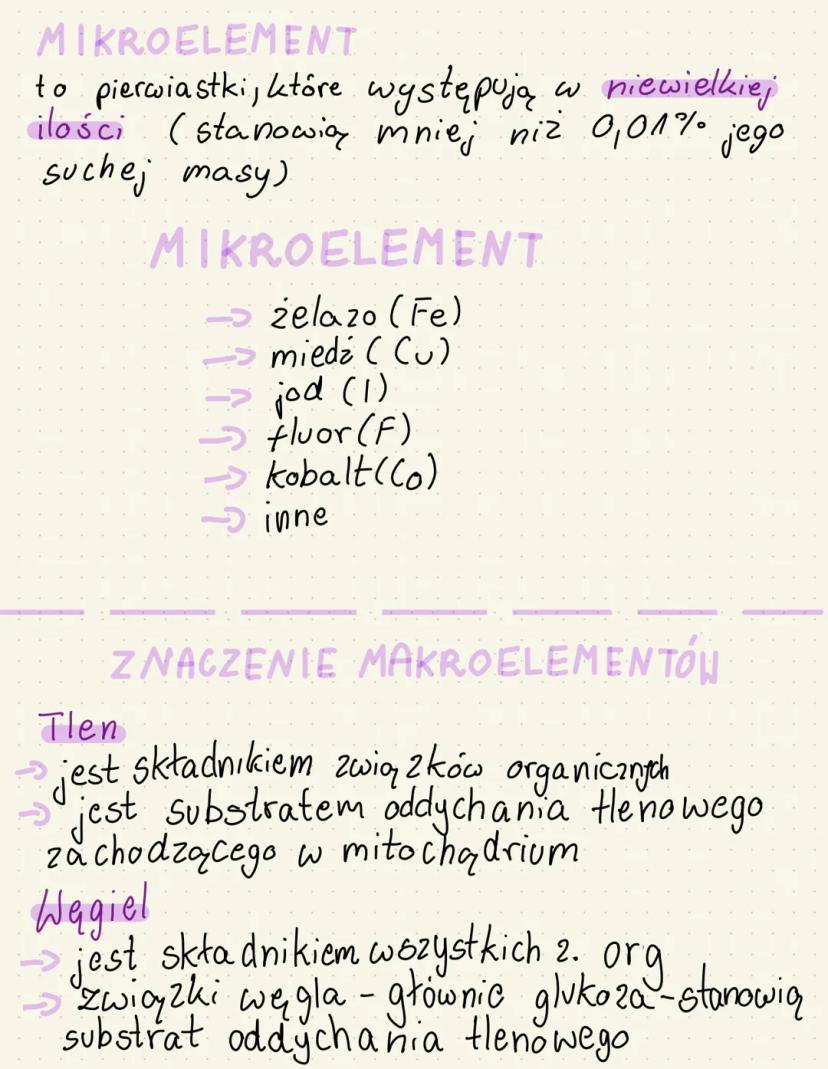 MIKROELEMENT
to pierwiastki, które występują w niewielkiej
ilości (stanowią mniej niż 0,01% jego
suchej masy)
MIKROELEMENT
→ żelazo (Fe)
→ miedź (Cu)
→ jod (I)
→ fluor (F)
→ kobalt (Co)
→ inne
ZNACZENIE MAKROELEMENTÓW
Tlen
→ jest składnikiem związków organicznych
→ jest substratem oddychania tlenowego
zachodzącego w mitochądrium
Węgiel
→ jest składnikiem wszystkich z. org
→ związki węgla - głównie glukoza - stanowią
substrat oddychania tlenowego